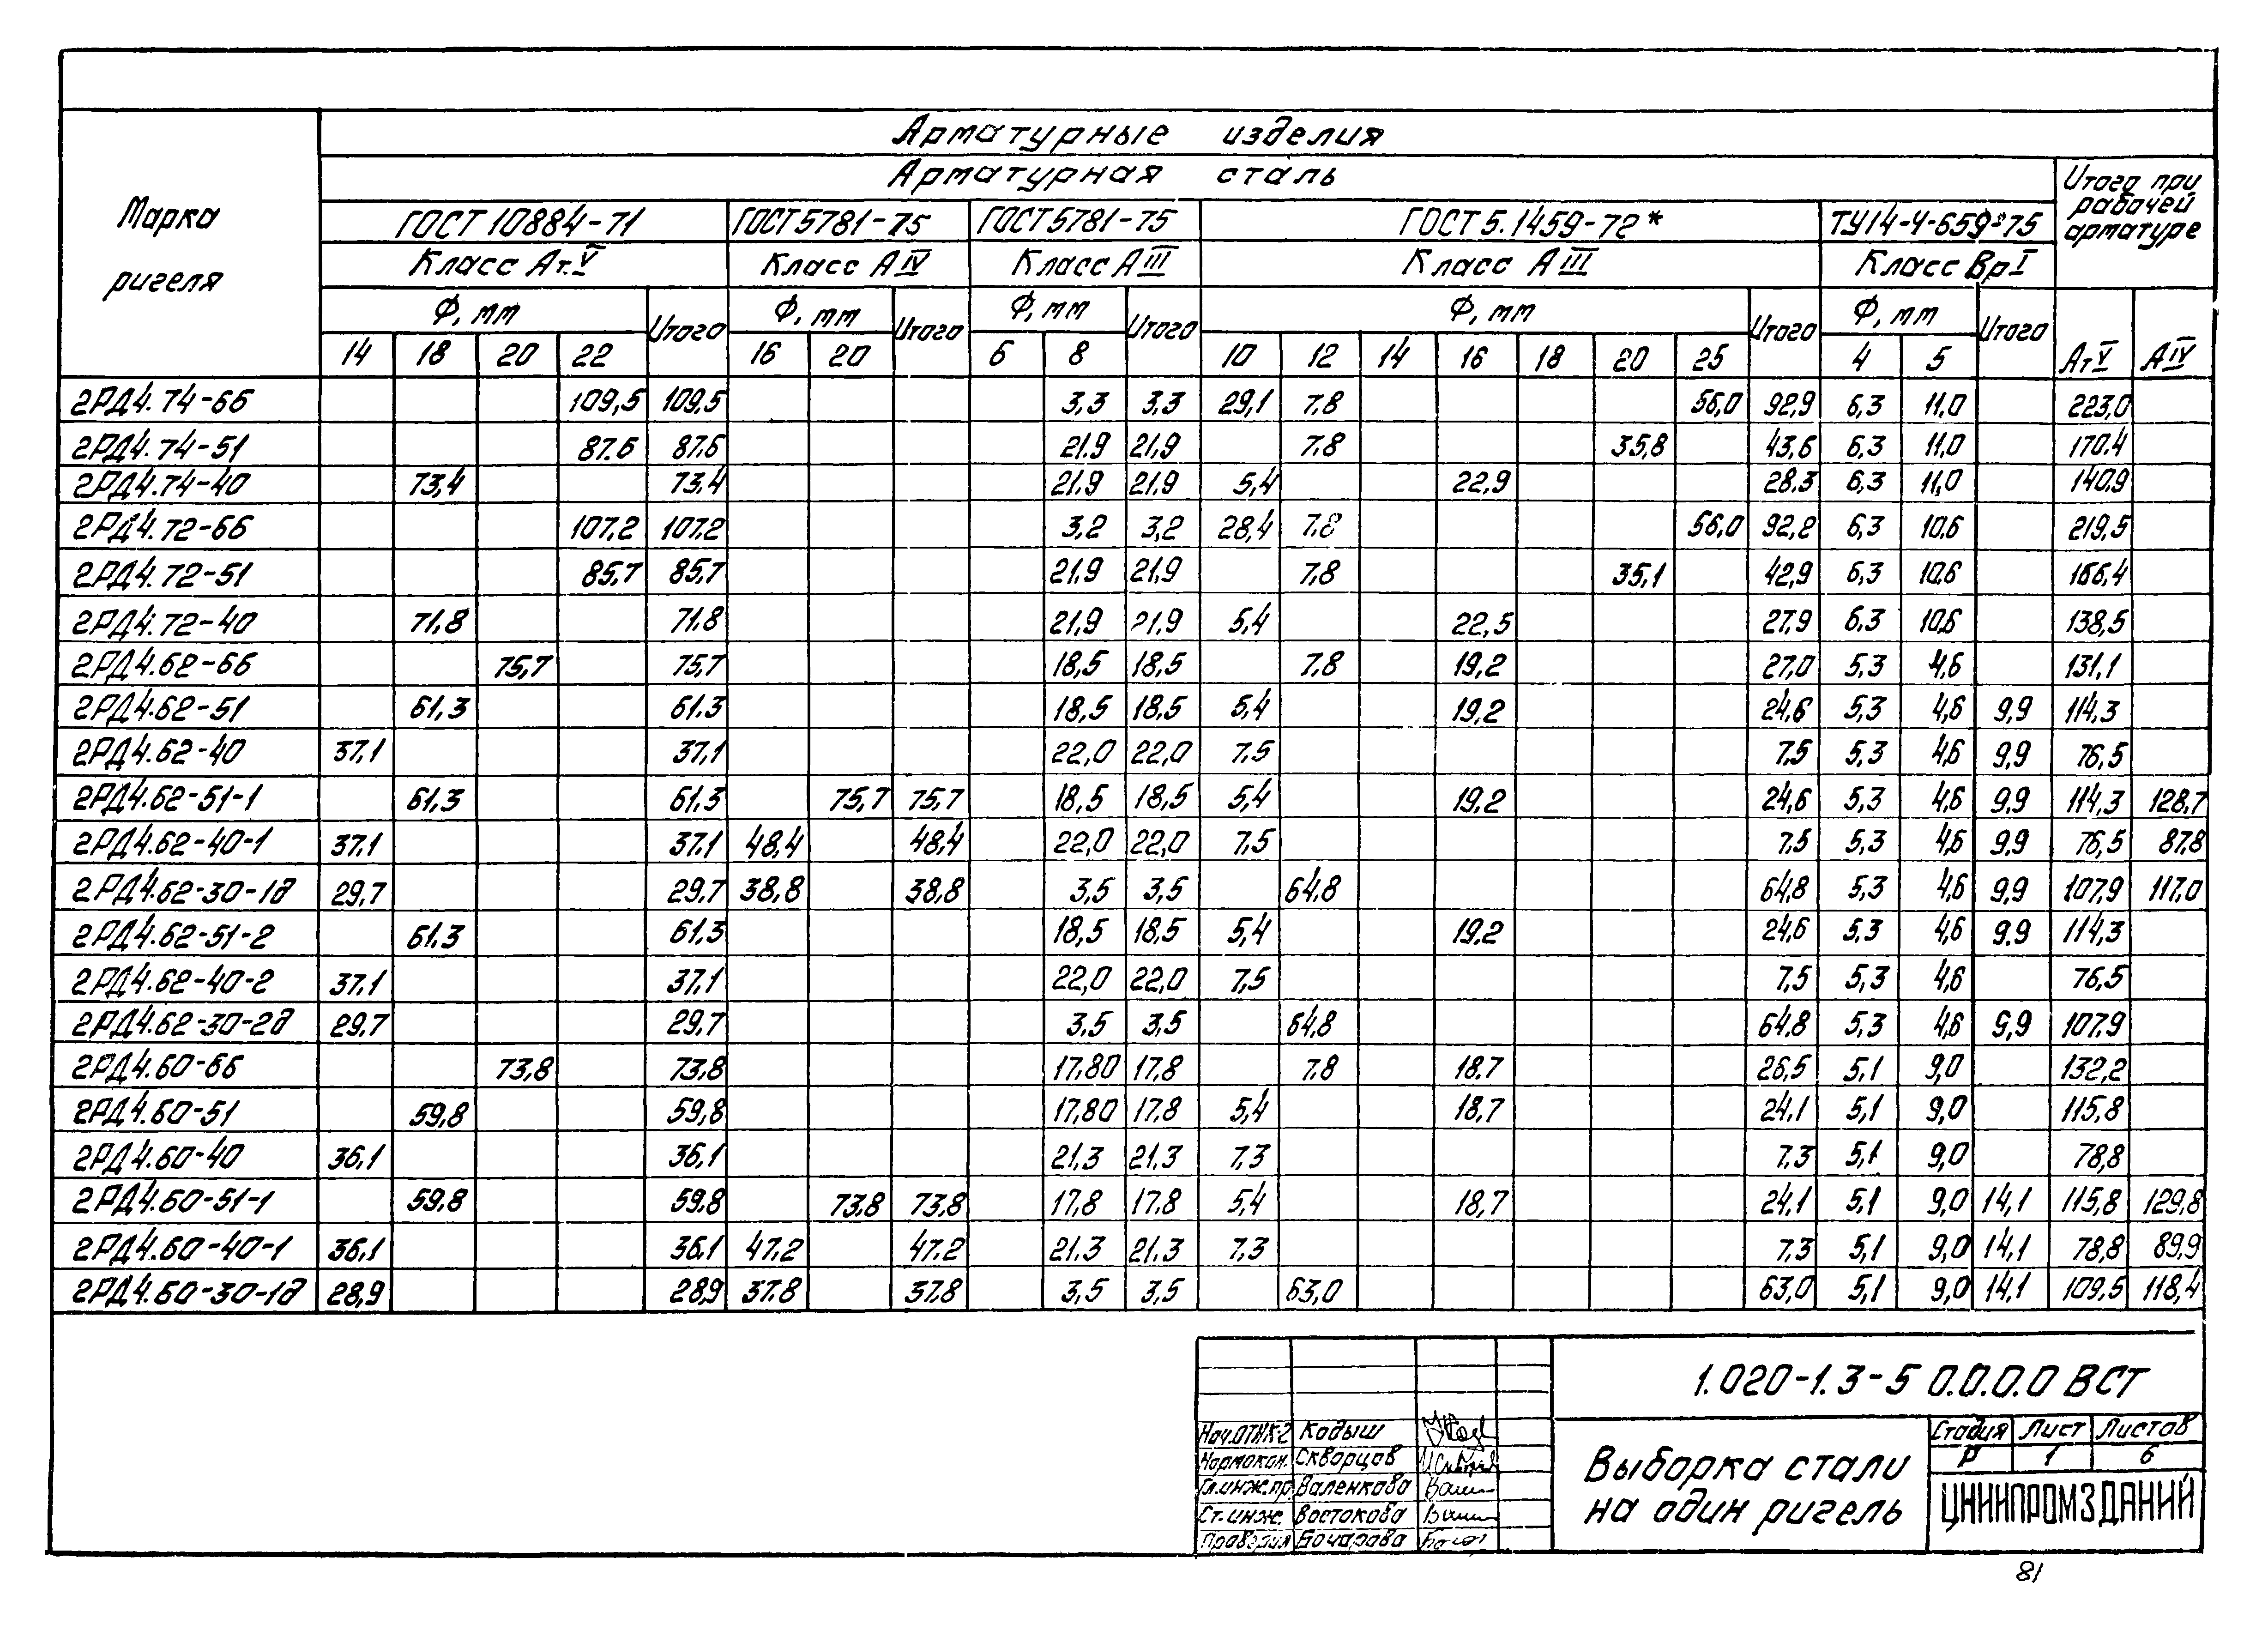 Арматурные изделия
Марка ригеля
Арматурная сталь
Итого при рабочей арматуре
ГОСТ 10884-71 ГОСТ 5781-75 ГОСТ 5781-75 ГОСТ 5.1459-72* ТУ14-4-659-75
Класс Ат.V Класс АIV Класс АIII Класс АIII Класс ВрI
Ф, мм Итого Ф, мм Итого Ф, мм Итого Ф, мм Итого Ф, мм Итого
14 18 20 22 16 20 6 8 10 12 14 16 18 20 25 4 5 АтV АIV
2РД4.74-66 109,5 109,5 3,3 3,3 29,1 7,8 56,0 92,9 6,3 11,0 223,0
2РД4.74-51 87.6 87.6 21.9 21,9 7,8 35,8 43,6 6,3 11,0 170.4
2РД4.74-40 73,4 73.4 21.9 21,9 5,4 22,9 28.3 6,3 11,0 140.9
2РД4.72-66 107,2 107.2 3,2 3,2 28,4 7,8 56,0 92,2 6,3 10,6 219,5
2РД4.72-51 85,7 85,7 21,9 21,9 7,8 35,1 42,9 6,3 10,6 166,4
2РД4.72-40 71,8 71.8 21,9 21,9 5,4 22,5 27,9 6,3 10,6 138,5
2РД4.62-66 75,7 75,7 18,5 18,5 7,8 19,2 27,0 5,3 4,6 131,1
2РД4.62-51 61,3 61.3 18,5 18,5 5,4 19,2 24,6 5,3 4,6 9,9 114,3
2РД4.62-40 37,1 37,1 22,0 22,0 7,5 7,5 5,3 4,6 9,9 76,5
2РД4.62-51-1 61,3 61,3 75,7 75,7 18,5 18,5 5,4 19,2 24,6 5,3 4,6 9,9 114,3 128,7
2РД4.62-40-1 37.1 37.1 48,4 48,4 22,0 22,0 7,5 7,5 5,3 4,6 9,9 76,5 87,8
2РД4.62-30-1д 29,7 29,7 38,8 38,8 3,5 3,5 64,8 64,8 5,3 4,6 9,9 107,9 117,0
2РД4.62-51-2 61.3 61,3 18,5 18,5 5,4 19,2 24,6 5,3 4,6 9,9 114,3
2РД4.62-40-2 37.1 37.1 22,0 22,0 7,5 7,5 5,3 4,6 76,5
2РД4.62-30-2д 29.7 29.7 3,5 3,5 64,8 64,8 5,3 4,6 9,9 107,9
2РД4.60-66 73,8 73,8 17,80 17,8 7,8 18.7 26,5 5,1 9,0 132,2
2РД4.60-51 59,8 59,8 17,80 17.8 5,4 18,7 24,1 5,1 9,0 115,8
2РД4.60-40 36,1 36,1 21,3 21.3 7,3 7,3 5,1 9,0 78,8
2РД4.60-51-1 59,8 59,8 73,8 73,8 17,8 17.8 5,4 18,7 24,1 5,1 9,0 14,1 115,8 129,8
2РД4.60-40-1 36,1 36,1 47.2 47.2 21.3 21.3 7,3 7,3 5,1 9,0 14,1 78,8 89,9
2РД4.60-30-1д 28,9 28,9 37.8 37.8 3,5 3,5 63,0 63,0 5,1 9,0 14,1 109,5 118,4
1.020-1.3-5 0.0.0.0 ВСТ
Нач.ОТНК-2 Кодыш
Нормокон. Скворцов
Гл.инж.пр. Валенкова
Ст.инж. Востокова
Проверил Бочарова
Выборка стали
на один ригель
Стадия Лист Листов
Р 1 6
ЦНИИПРОМЗДАНИЙ
81